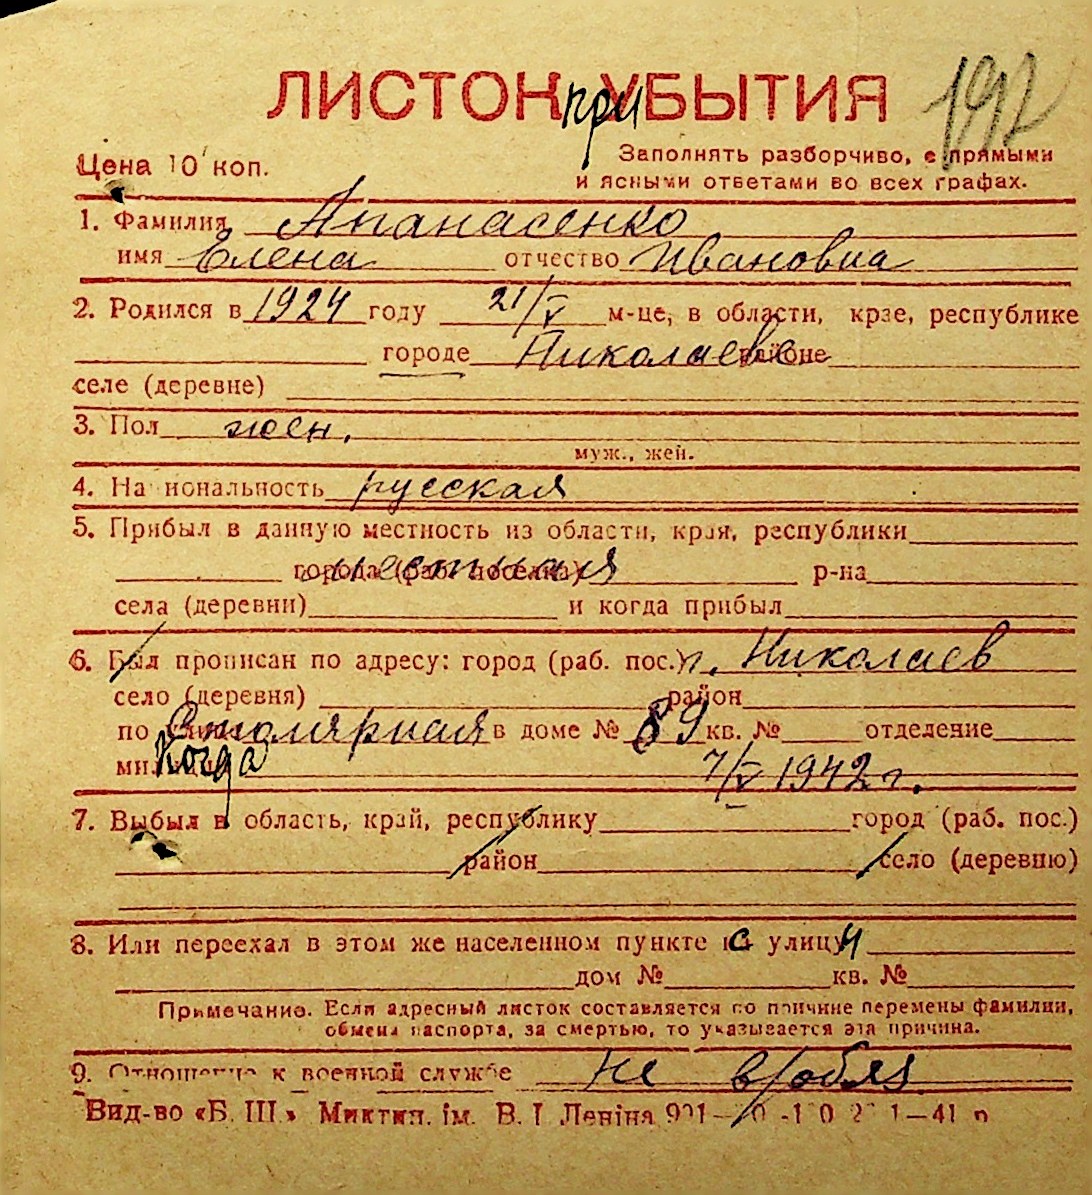 ЛИСТОК при УБЫТИЯ
192
Цена 10 коп.
Заполнять разборчиво, с прямыми
и ясными ответами во всех графах.
1. Фамилия Апанасенко
имя Елена отчество Ивановна
2. Родился в 1924 году 21/V м-це, в области, крае, республике
городе Николаеве районе
селе (деревне)
3. Пол жен.
муж., жен.
4. Национальность русская
5. Прибыл в данную местность из области, края, республики
города (раб. поселка) местная р-на
села (деревни) и когда прибыл
6. Был прописан по адресу: город (раб. пос.) г. Николаев
село (деревня) район
по улице Столярная в доме № 89 кв. № отделение
милиции Когда 7/V 1942 г.
7. Выбыл в область, край, республику город (раб. пос.)
район село (деревню)
8. Или переехал в этом же населенном пункте на с улицу и
дом № кв. №
Примечание. Если адресный листок составляется по причине перемены фамилии,
обмена паспорта, за смертью, то указывается эта причина.
9. Отношение к военной службе не в/обяз
Вид-во «Б. Ш.» Миктип. ім. В. І. Леніна